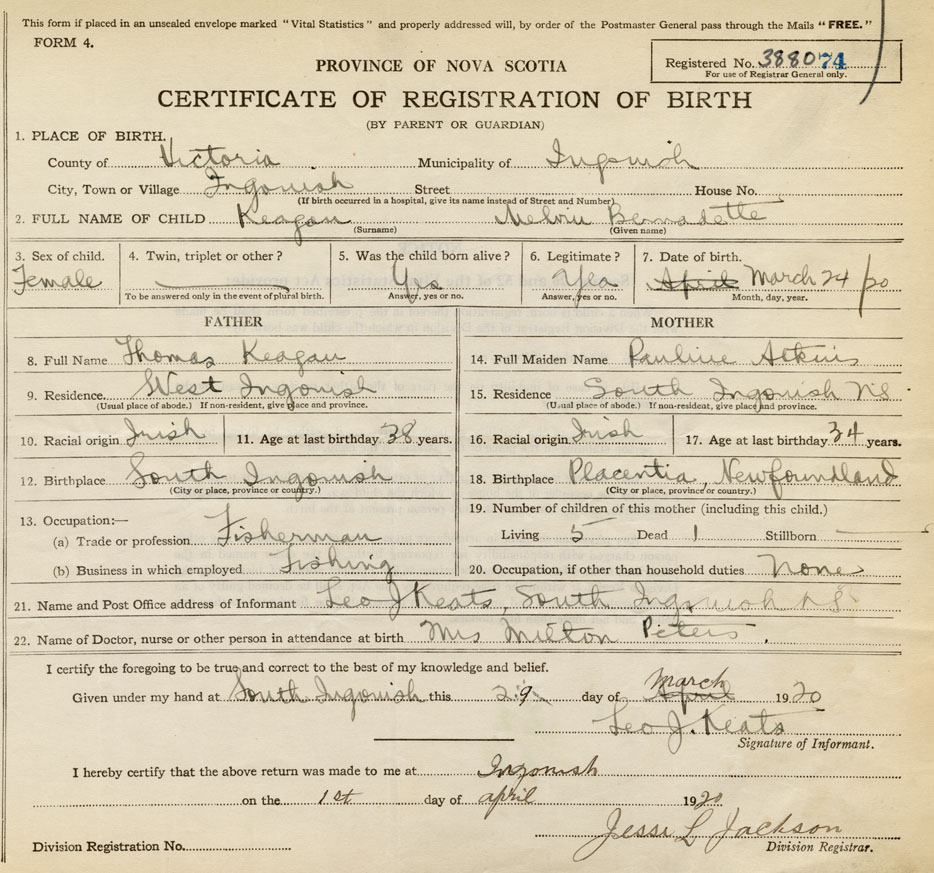 This form if placed in an unsealed envelope marked "Vital Statistics" and properly addressed will, by order of the Postmaster General pass through the Mails "FREE."
FORM 4.
Registered No. 388074
For use of Registrar General only.
PROVINCE OF NOVA SCOTIA
CERTIFICATE OF REGISTRATION OF BIRTH
(BY PARENT OR GUARDIAN)
1. PLACE OF BIRTH.
County of Victoria Municipality of Ingonish
City, Town or Village Ingonish Street House No.
(If birth occurred in a hospital, give its name instead of Street and Number)
2. FULL NAME OF CHILD Keagan Melvin Bernadette
(Surname) (Given name)
3. Sex of child. 4. Twin, triplet or other? 5. Was the child born alive? 6. Legitimate? 7. Date of birth.
Female Yes Yes April March 24/20
To be answered only in the event of plural birth. Answer, yes or no. Answer, yes or no. Month, day, year.
FATHER MOTHER
8. Full Name Thomas Keagan 14. Full Maiden Name Pauline Atkins
9. Residence West Ingonish 15. Residence South Ingonish NS
(Usual place of abode.) If non-resident, give place and province. (Usual place of abode.) If non-resident, give place and province.
10. Racial origin Irish 11. Age at last birthday 38 years. 16. Racial origin Irish 17. Age at last birthday 34 years.
12. Birthplace South Ingonish 18. Birthplace Placentia, Newfoundland
(City or place, province or country.) (City or place, province or country.)
13. Occupation:— 19. Number of children of this mother (including this child.)
(a) Trade or profession Fisherman Living 5 Dead 1 Stillborn
(b) Business in which employed Fishing 20. Occupation, if other than household duties None
21. Name and Post Office address of Informant Leo J Keats, South Ingonish NS
22. Name of Doctor, nurse or other person in attendance at birth Mrs Milton Peters.
I certify the foregoing to be true and correct to the best of my knowledge and belief.
Given under my hand at South Ingonish this 29 day of April March 1920
Leo J. Keats
Signature of Informant.
I hereby certify that the above return was made to me at Ingonish
on the 1st day of april 1920
Jessi L Jackson
Division Registration No. Division Registrar.